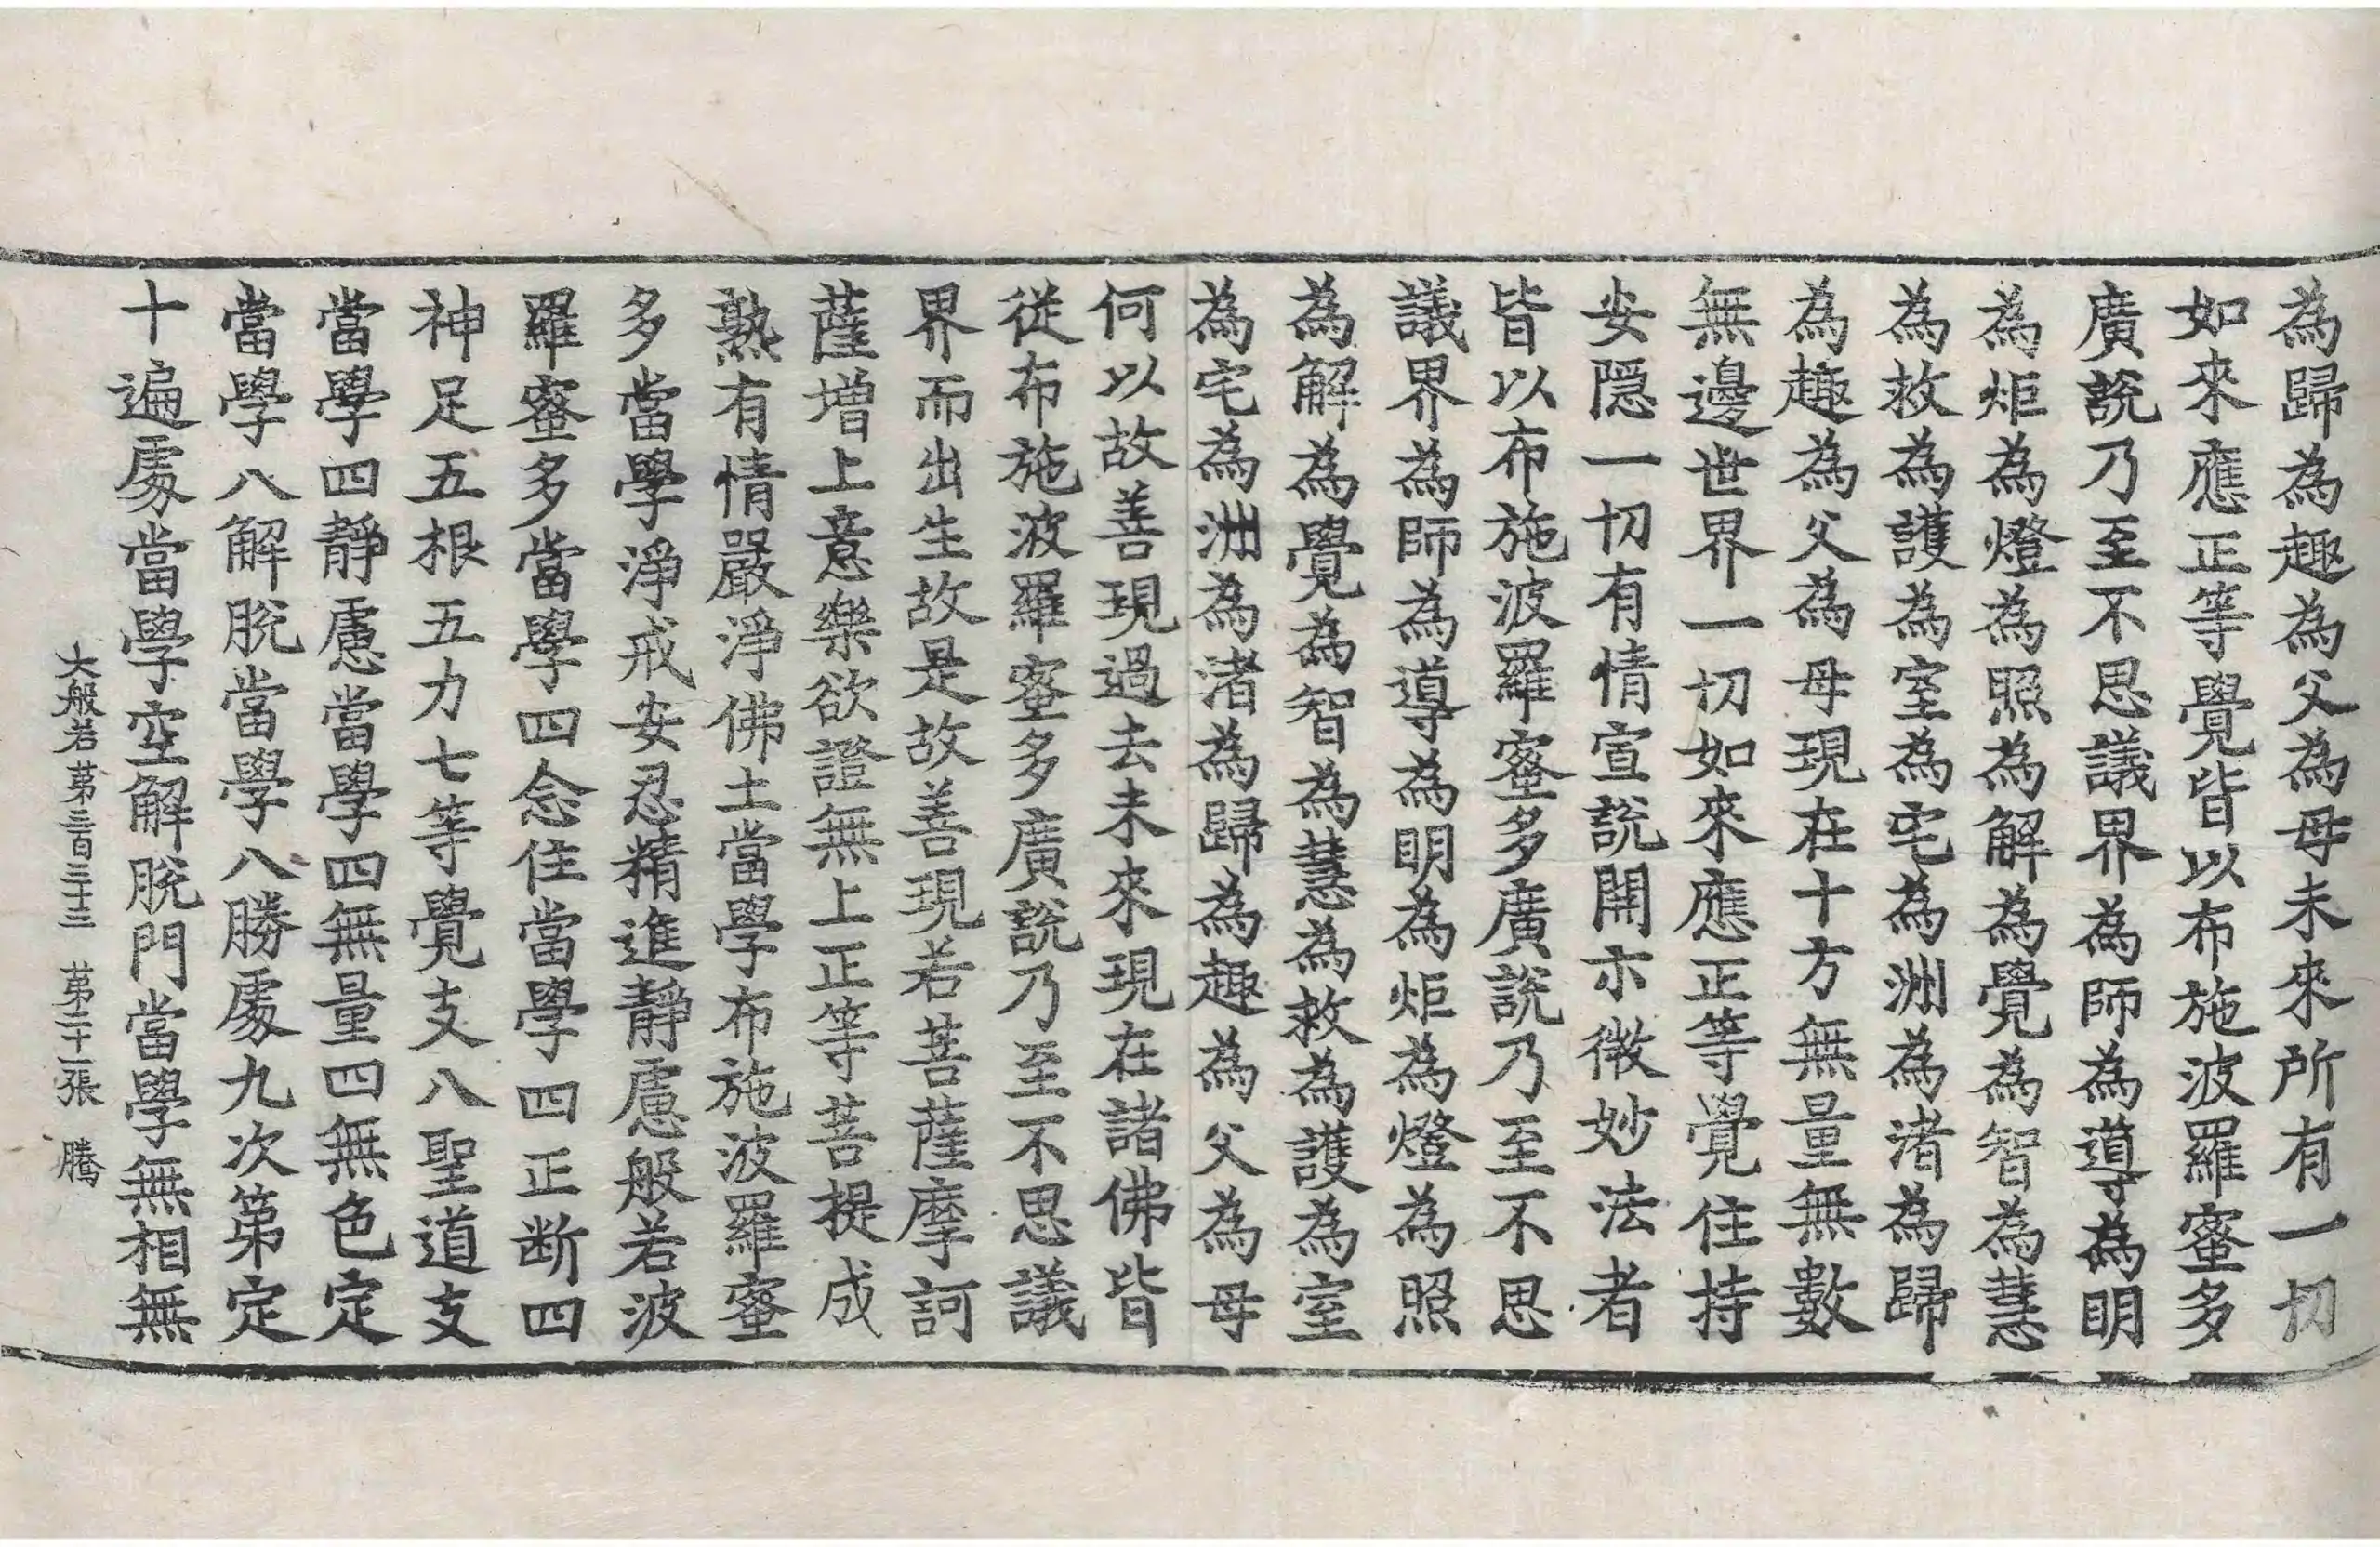 為歸為趣為父為母未來所有一切
如來應正等覺皆以布施波羅蜜多
廣說乃至不思議界為師為導為明
為炬為燈為照為解為覺為智為慧
為救為護為室為宅為洲為渚為歸
為趣為父為母現在十方無量無數
無邊世界一切如來應正等覺住持
安隱一切有情宣說開示微妙法者
皆以布施波羅蜜多廣說乃至不思
議界為師為導為明為炬為燈為照
為解為覺為智為慧為救為護為室
為宅為洲為渚為歸為趣為父為母
何以故善現過去未來現在諸佛皆
從布施波羅蜜多廣說乃至不思議
界而出生故是故善現若菩薩摩訶
薩增上意樂欲證無上正等菩提成
熟有情嚴淨佛土當學布施波羅蜜
多當學淨戒安忍精進靜慮般若波
羅蜜多當學四念住當學四正断四
神足五根五力七等覺支八聖道支
當學四靜慮當學四無量四無色定
當學八解脫當學八勝處九次第定
十遍處當學空解脫門當學無相無
大般若第三百三十三 第二十一張 騰